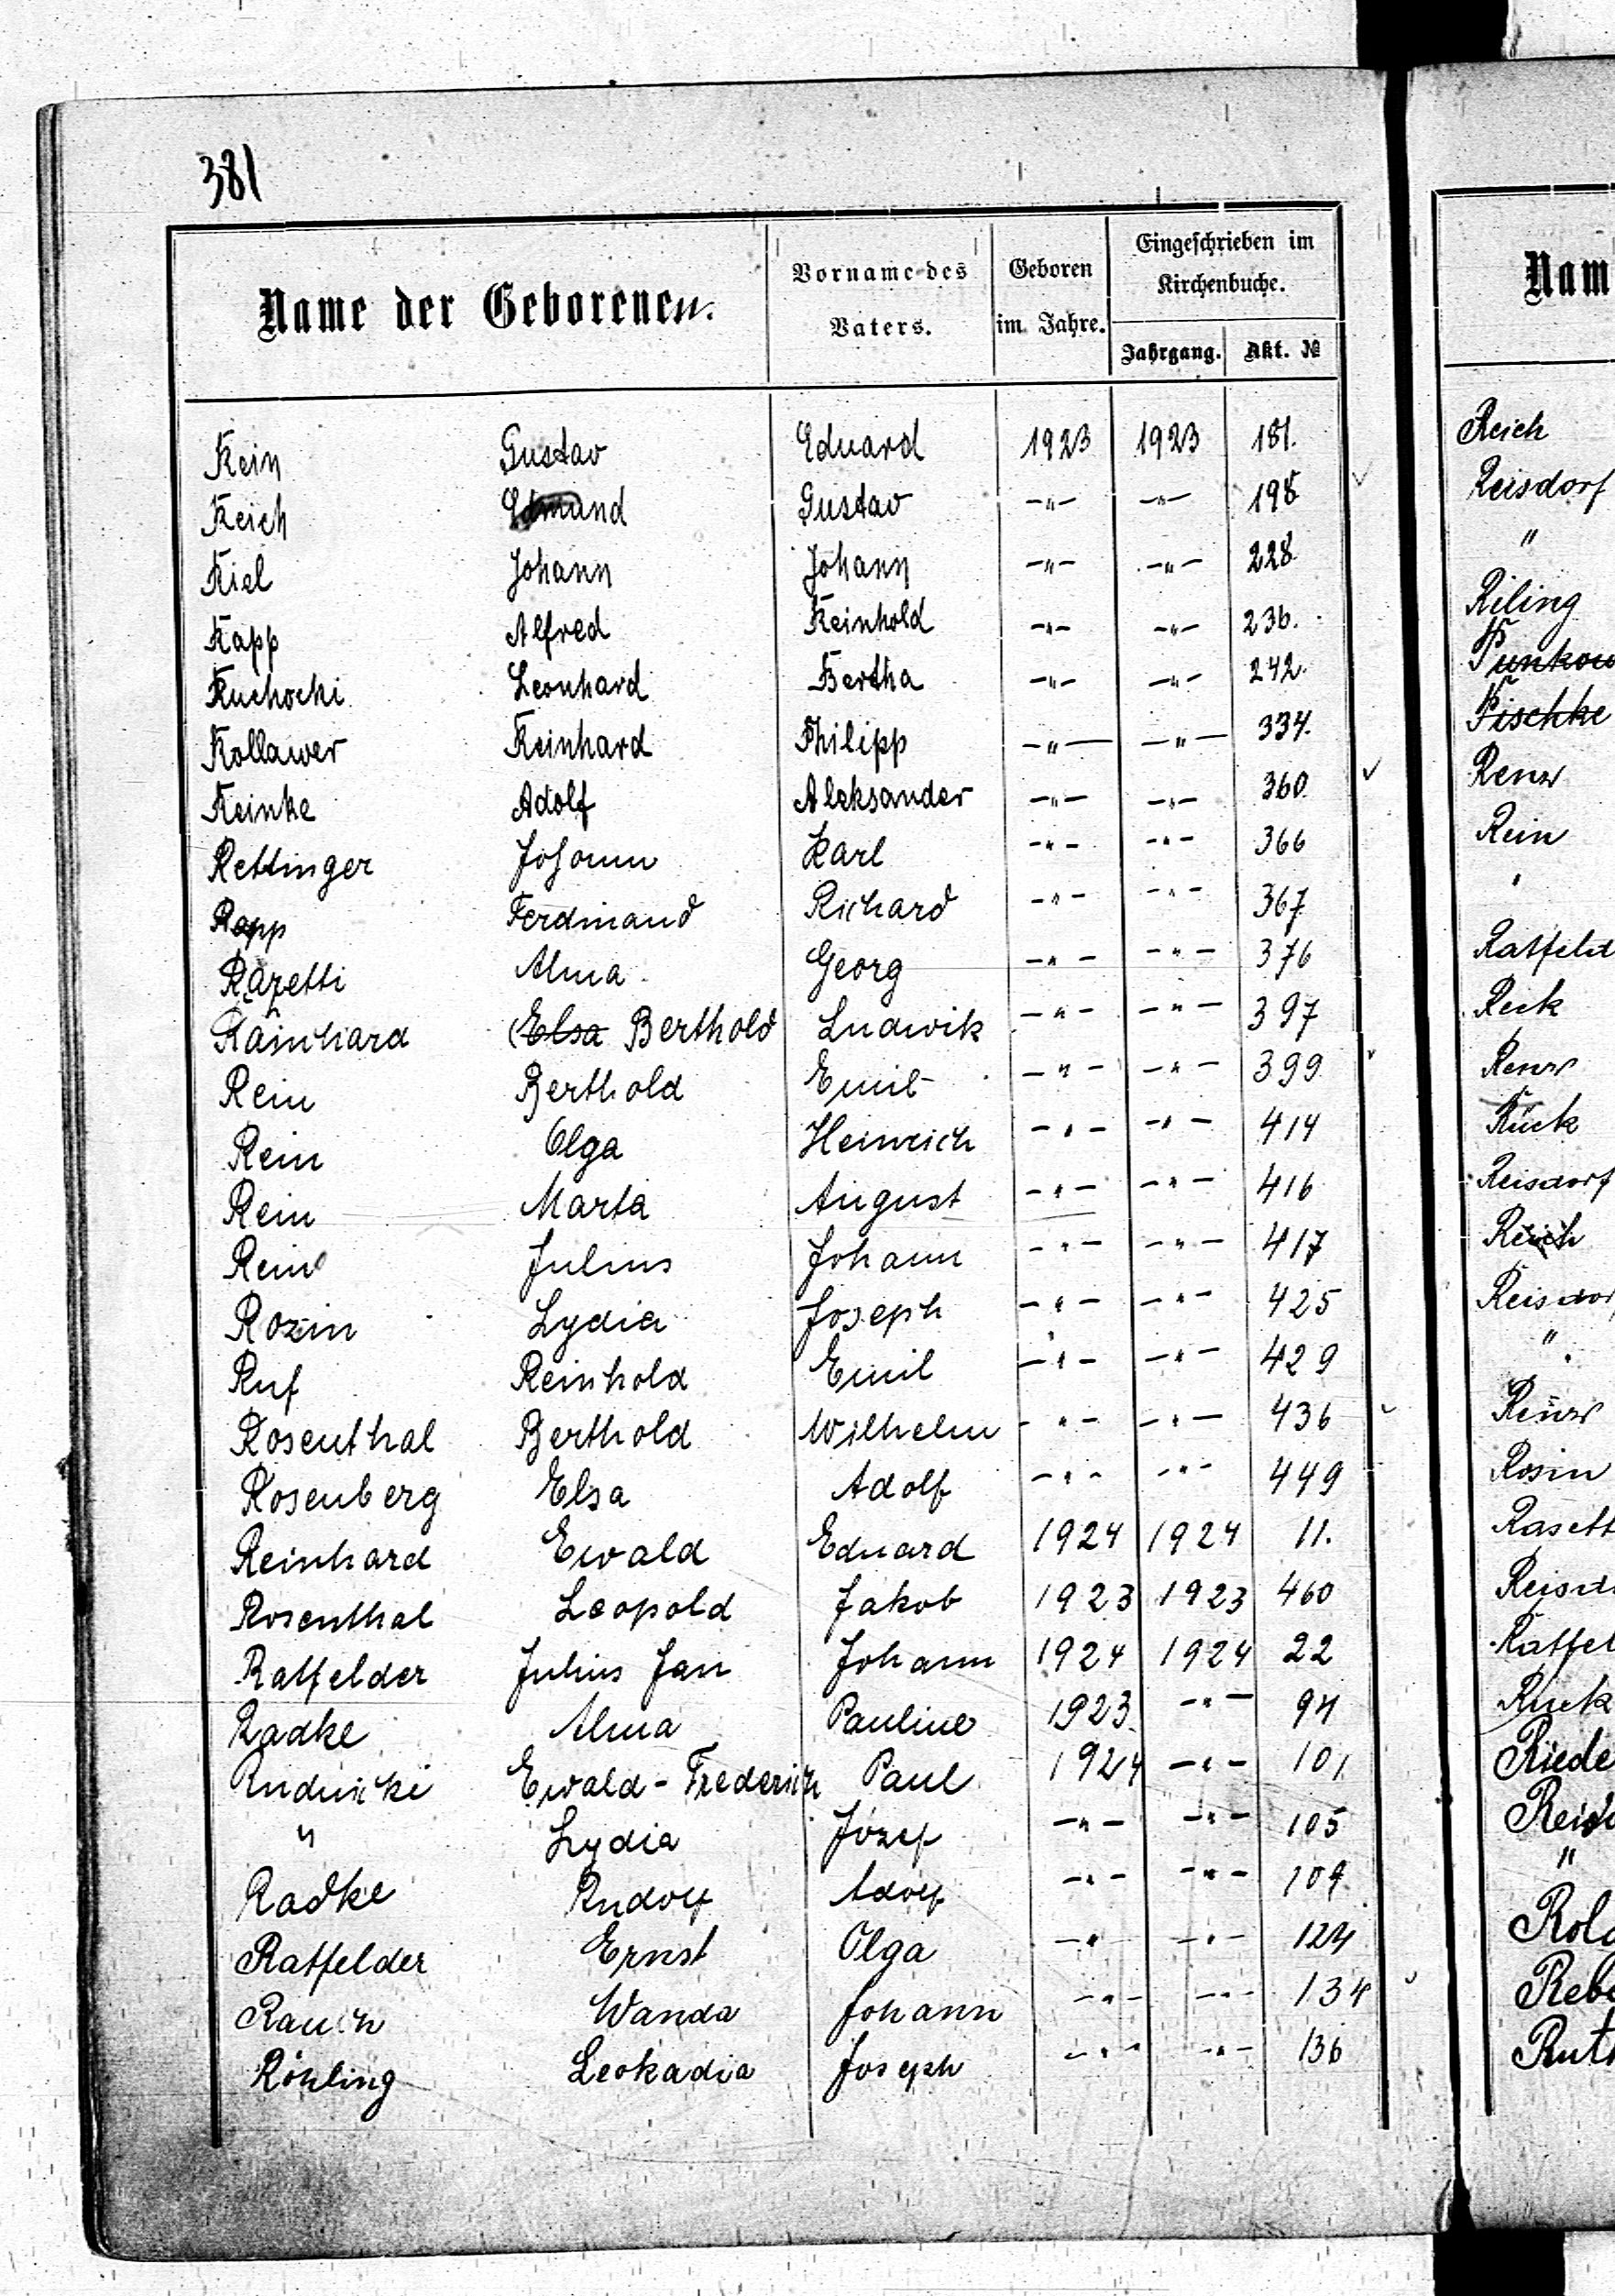 381
Name der Geborenen.
Vorname des Vaters.
Geboren im Jahre.
Eingeschrieben im Kirchenbuche.
Jahrgang. Akt. №
Rein Gustav Eduard 1923 1923 181.
Reich Edmund Gustav -"- -"- 198
Riel Johann Johann -"- -"- 228.
Rapp Alfred Reinhold -"- -"- 236.
Ruchocki Leonhard Bertha -"- -"- 242.
Rollawer Reinhard Philipp -"- -"- 334.
Reinke Adolf Aleksander -"- -"- 360.
Rettinger Johann Karl -"- -"- 366
Rapp Ferdinand Richard -"- -"- 367
Razetti Alma Georg -"- -"- 376
Rainhard (Elsa Berthold Ludwik -"- -"- 397
Rein Berthold Emil -"- -"- 399
Rein Olga Heinrich -"- -"- 414
Rein Marta August -"- -"- 416
Rein Julius Johann -"- -"- 417
Rozin Lydia Joseph -"- -"- 425
Ruf Reinhold Emil -"- -"- 429
Rosenthal Berthold Wilhelm -"- -"- 436
Rosenberg Elsa Adolf -"- -"- 449
Reinhard Ewald Eduard 1924 1924 11.
Rosenthal Leopold Jakob 1923 1923 460
Ratfelder Julius Jan Johann 1924 1924 22
Radke Alma Pauline 1923 -"- 94
Rudnicki Ewald-Frederich Paul 1924 -"- 101
" Lydia Józef -"- -"- 105
Radke Rudolf Adolf -"- -"- 109
Ratfelder Ernst Olga -"- -"- 124
Rauch Wanda Johann -"- -"- 134
Röhling Leokadia Joseph -"- -"- 136
Nam
Reich
Reisdorf
"
Riling
Renz
Rein
"
Ratfeld
Reck
Renz
Rück
Reisdorf
Reich
Reisdor
"
Renz
Rosin
Rasett
Ratfel
Ruck
Riede
"
Rebe
Rut